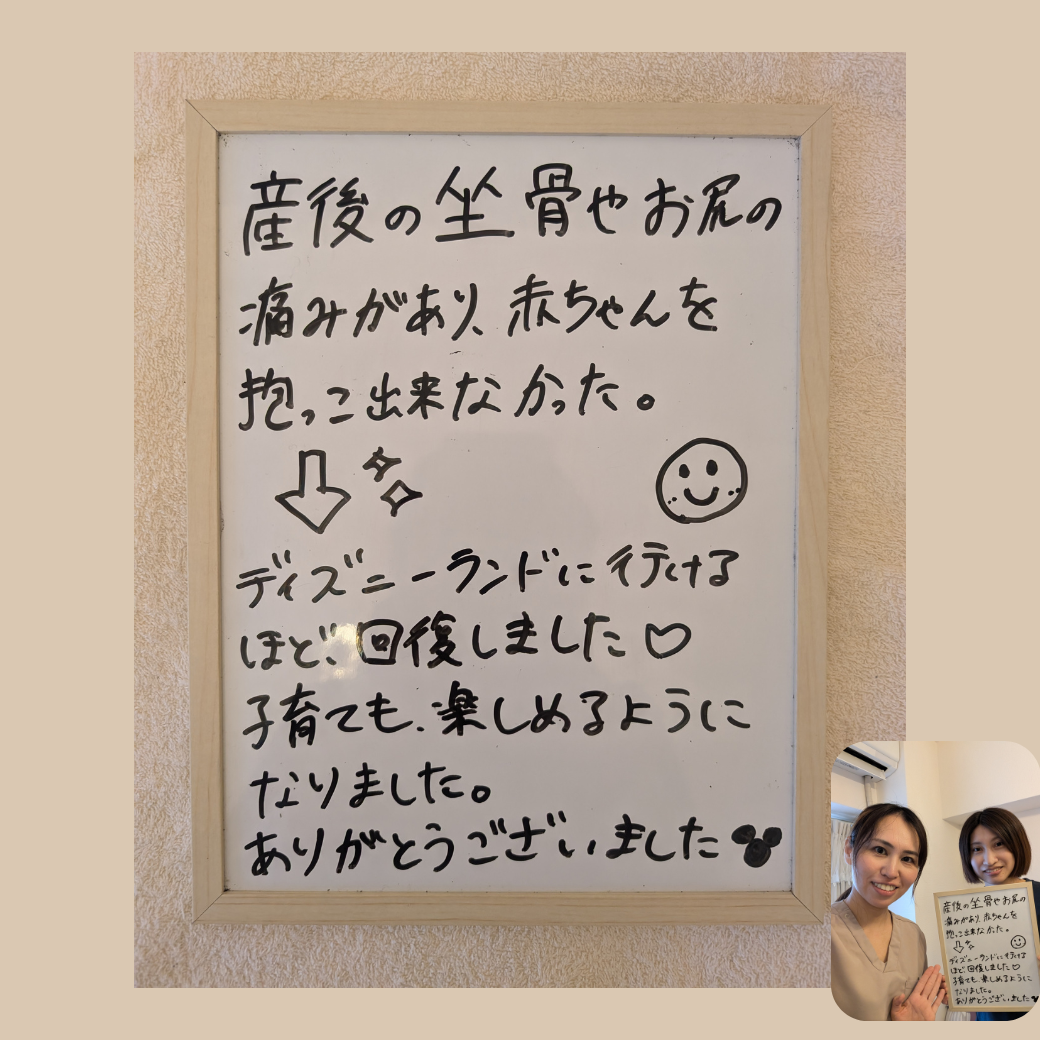 産後の坐骨やお尻の
痛みがあり、赤ちゃんを
抱っこ出来なかった。
ディズニーランドに行ける
ほど、回復しました♡
子育ても、楽しめるように
なりました。
ありがとうございました
産後の坐骨やお尻の
痛みがあり、赤ちゃんを
抱っこ出来なかった。
ディズニーランドに行ける
ほど、回復しました♡
子育ても、楽しめるように
なりました。
ありがとうございました